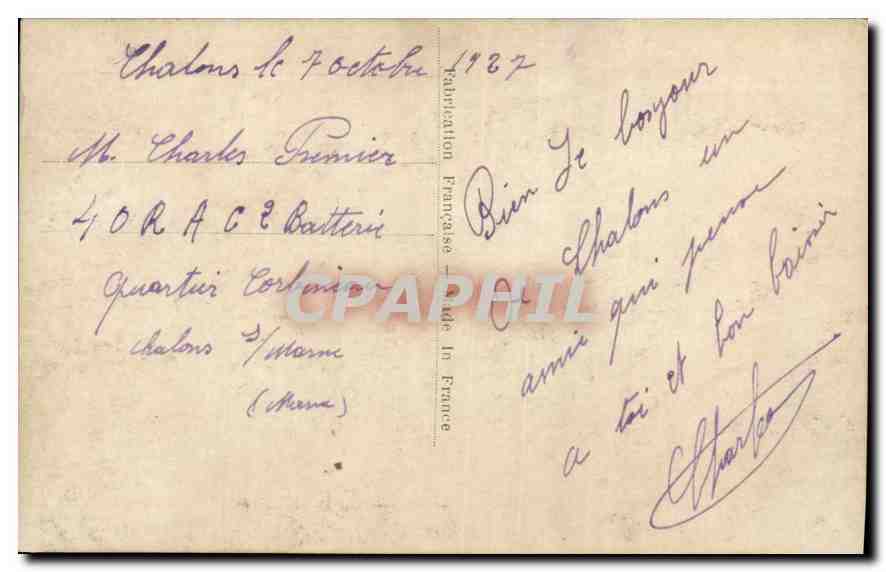 Chalons le 7 octobre 1927
M. Charles Premier
40 R A C 2 Batterie
Quartier
Chalons s/ Marne
(Marne)
Fabrication Française — Made in France
Bien Le bonjour
De Chalons un
amie qui pense
a toi et bon baisir
Charles
CPAPHIL